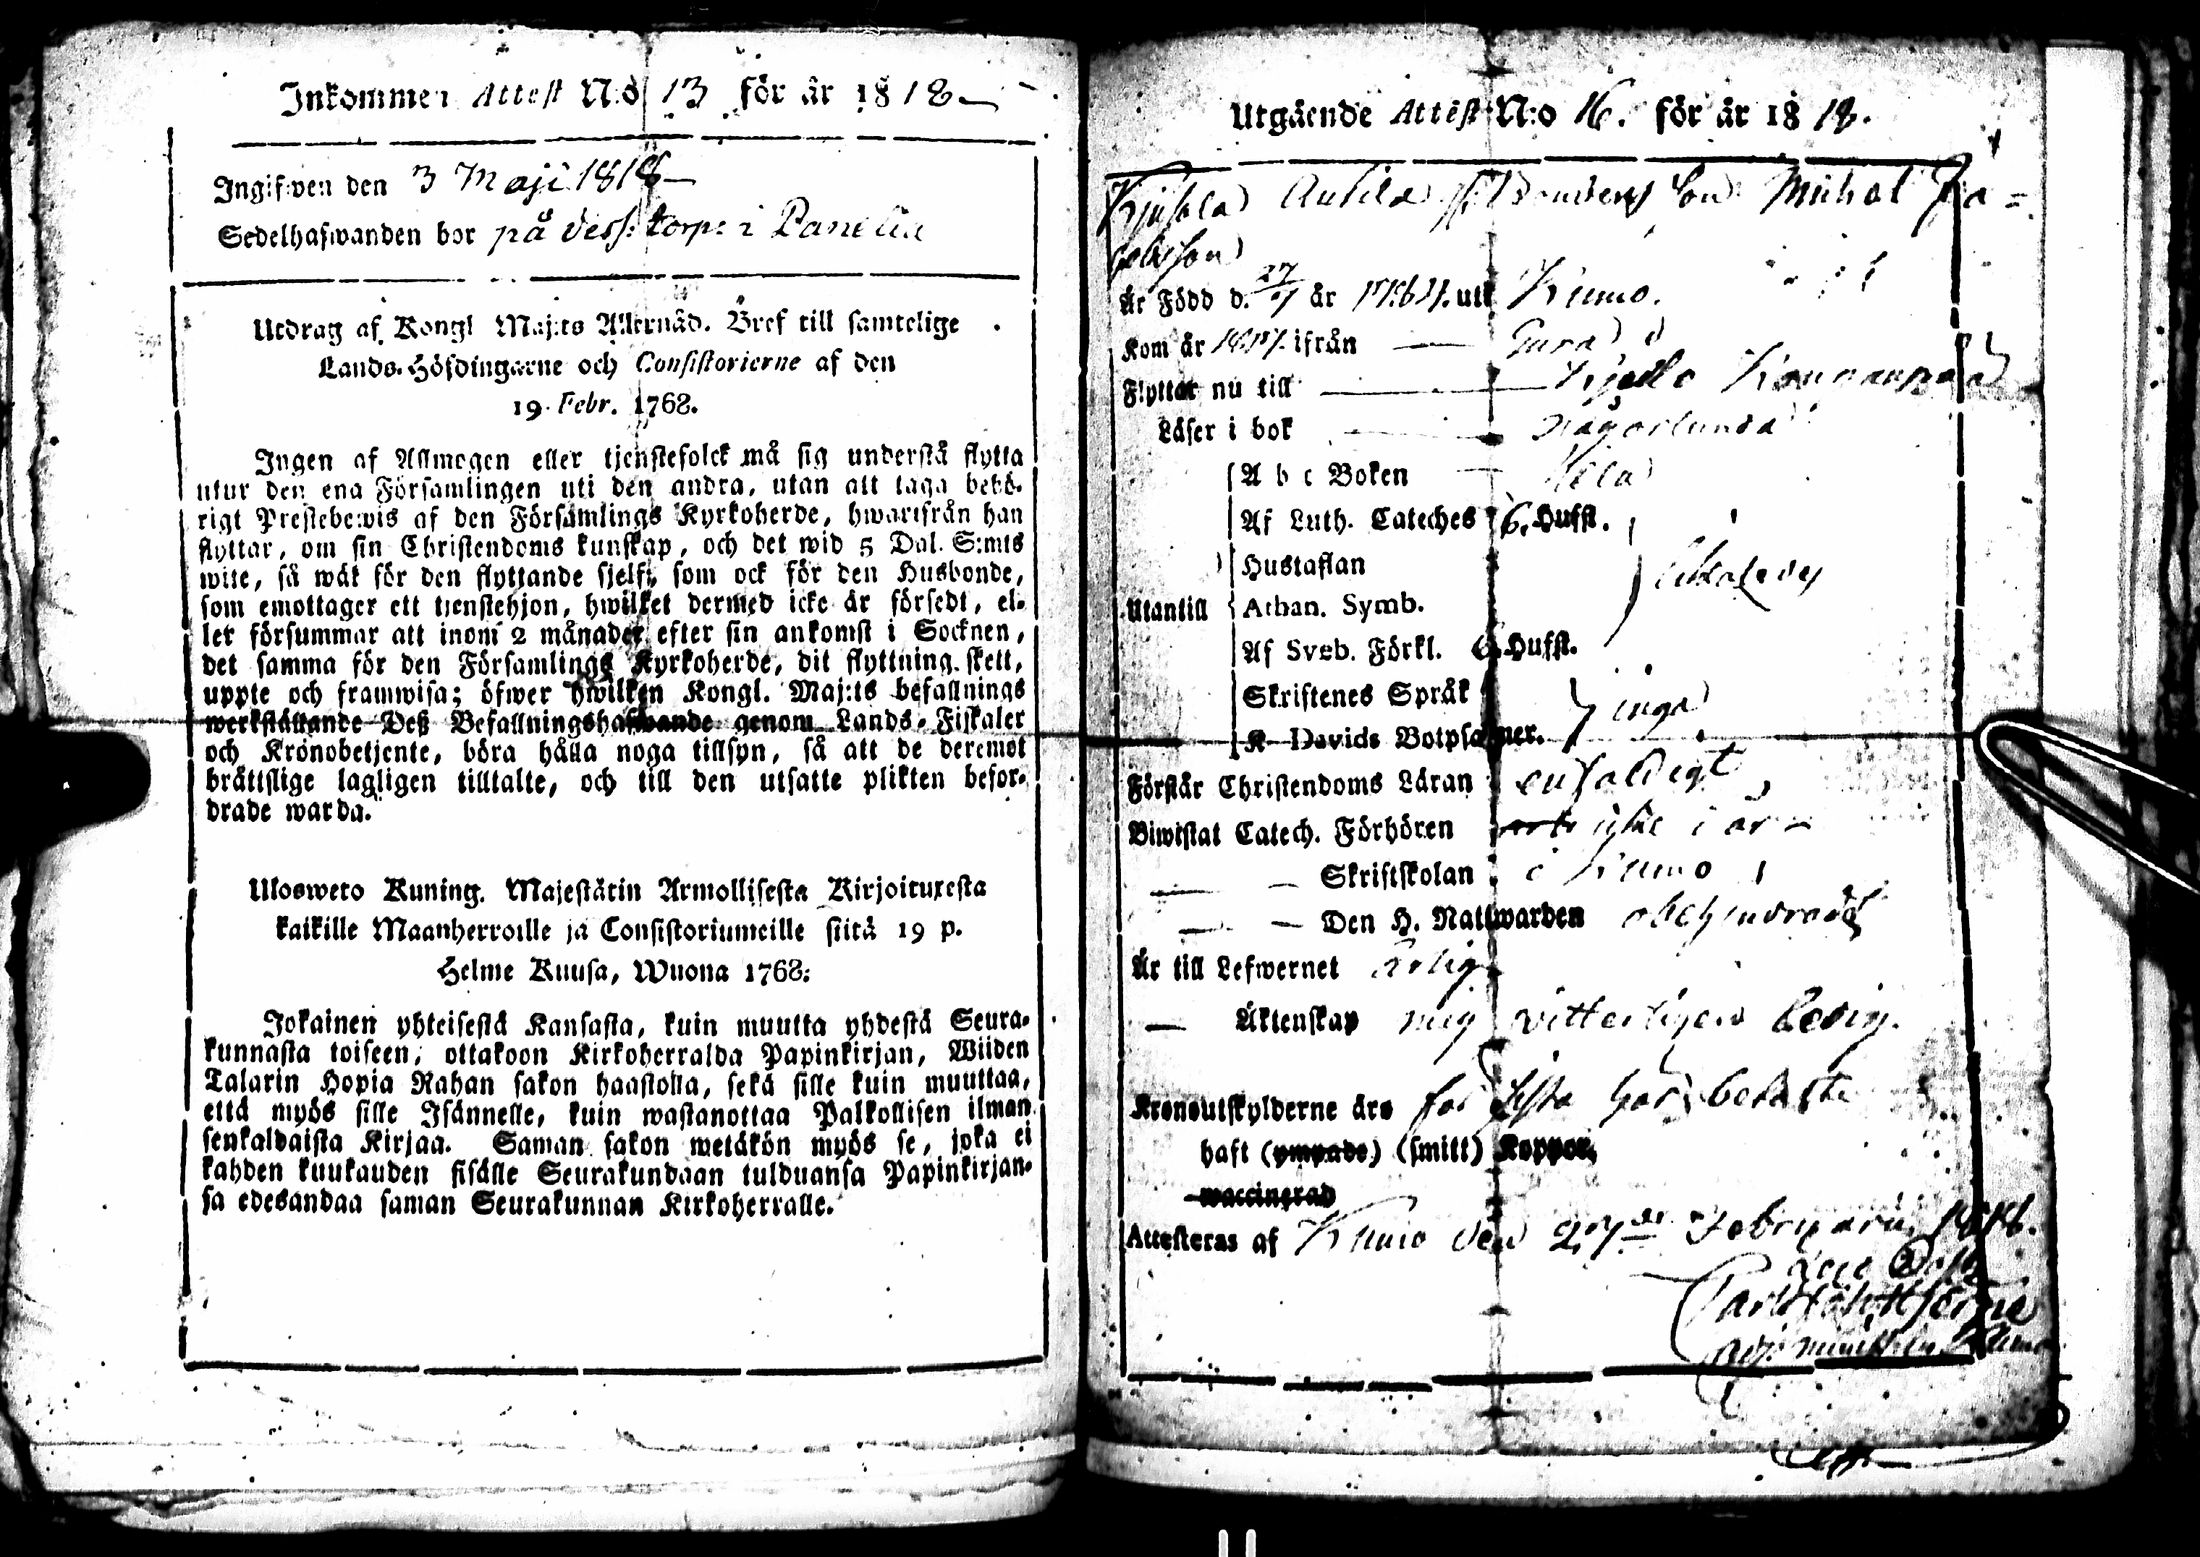 Inkommen Attest N:o 13 för år 1818
Ingifwen den 3 Maji 1818
Sedelhafwanden bor på dess torp i Panelia
Utdrag af Kongl Maj:ts Allernåd. Bref till samtelige
Lands-Höfdingarne och Consistorierne af den
19 Febr. 1768.
Ingen af Allmogen eller tjenstefolck må sig understå flytta
utur den ena Församlingen uti den andra, utan att taga behö-
rigt Prestebewis af den Församlings Kyrkoherde, hwartfrån han
flyttar, om sin Christendoms kunskap, och det wid 5 Dal. S:mts
wite, så wäl för den flyttande sjelf, som ock för den Husbonde,
som emottager ett tjenstehjon, hwilket dermed icke är försedt, el-
ler försummar att inom 2 månader efter sin ankomst i Socknen,
det samma för den Församlings Kyrkoherde, dit flyttning skett,
uppte och framwisa; öfwer hwilken Kongl. Maj:ts befallnings
werkställande Deß Befallningshafwande genom Lands-Fiskaler
och Kronobetjente, böra hålla noga tillsyn, så att de deremot
bråttslige lagligen tilltalte, och till den utsatte plikten befor-
drade warda.
Ulosweto Kuning. Majestätin Armollisesta Kirjoituxesta
kaikille Maanherroille ja Consistoriumeille siitä 19 p.
Helme Kuusa, Wuona 1768:
Jokainen yhteisestä Kansasta, kuin muutta yhdestä Seura-
kunnasta toiseen, ottakoon Kirkoherralda Papinkirjan, Wiiden
Talarin Hopia Rahan sakon haastolla, sekä sille kuin muuttaa,
että myös sille Isännelle, kuin wastanottaa Palkollisen ilman
senkaldaista Kirjaa. Saman sakon wetäkön myös se, joka ei
kahden kuukauden sisälle Seurakundaan tulduansa Papinkirjan-
sa edesandaa saman Seurakunnan Kirkoherralle.
Utgående Attest N:o 16. för år 1818.
Anttila son Michel Ja=
cobsson
Är Född d. 27 år uti Kumo.
Kom år 1817 ifrån
Flyttar nu till
Läser i bok någorlunda
A b c Boken Hela
Af Luth. Cateches 6. Hufst.
Hustaflan
Utantill Athan. Symb.
Af Sveb. Förkl. 6. Hufst.
Skriftenes Språk
K Davids Botpsalmer. inga
Förstår Christendoms Läran enfaldigt
Biwistat Catech. Förhören icke i år
Skriftskolan i Kumo
Den H. Nattwarden obehindrad
Är till Lefwernet Ärlig
Äktenskap mig vitterligen ledig.
Kronoutskylderne äro för sista året betalte
haft (ympade) (smitt) Koppor,
waccinerad
Attesteras af Kumo den 27de Februarii 1818.